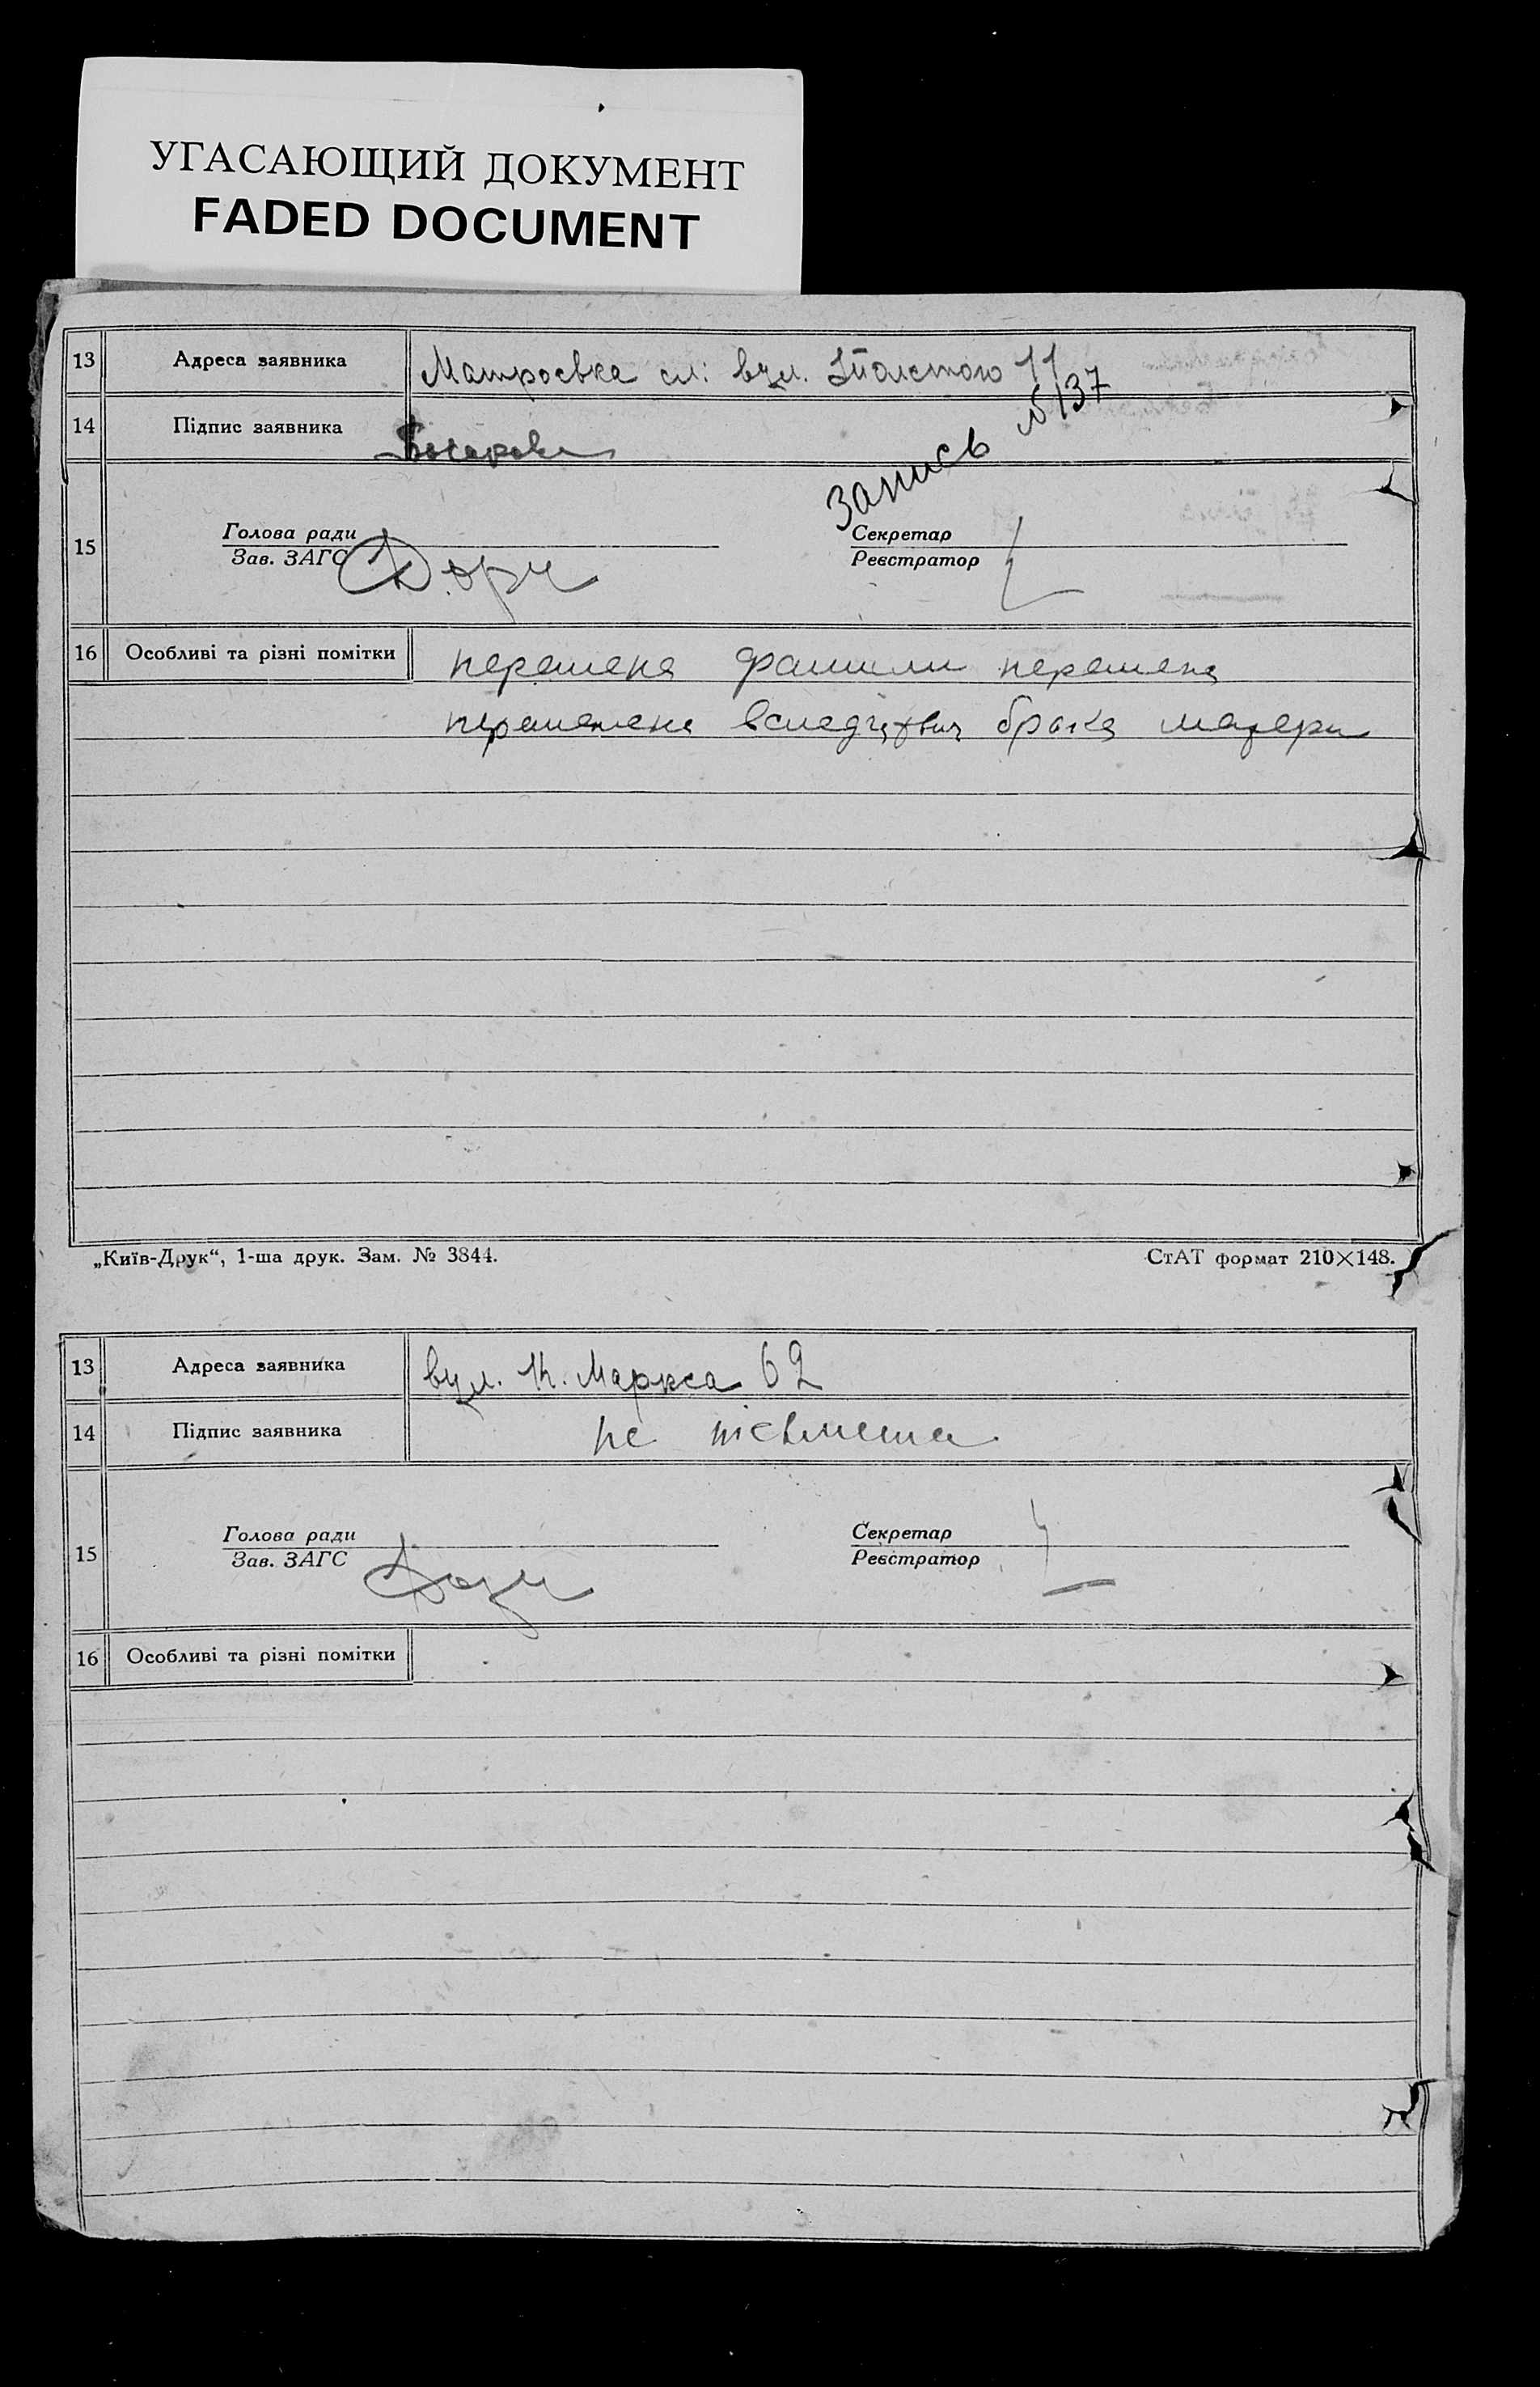 УГАСАЮЩИЙ ДОКУМЕНТ
FADED DOCUMENT
13 Адреса заявника Матросвка сл: вул. Толстого 11
14 Підпис заявника
Запись №137
15 Голова ради Секретар
Зав. ЗАГС Реєстратор
16 Особливі та різні помітки перемена фамили перемена
переменена вследствич брака матери
„Київ-Друк“, 1-ша друк. Зам. № 3844. СтАТ формат 210×148.
13 Адреса заявника вул. К. Маркса 62
14 Підпис заявника не пісьмена
15 Голова ради Секретар
Зав. ЗАГС Реєстратор
16 Особливі та різні помітки